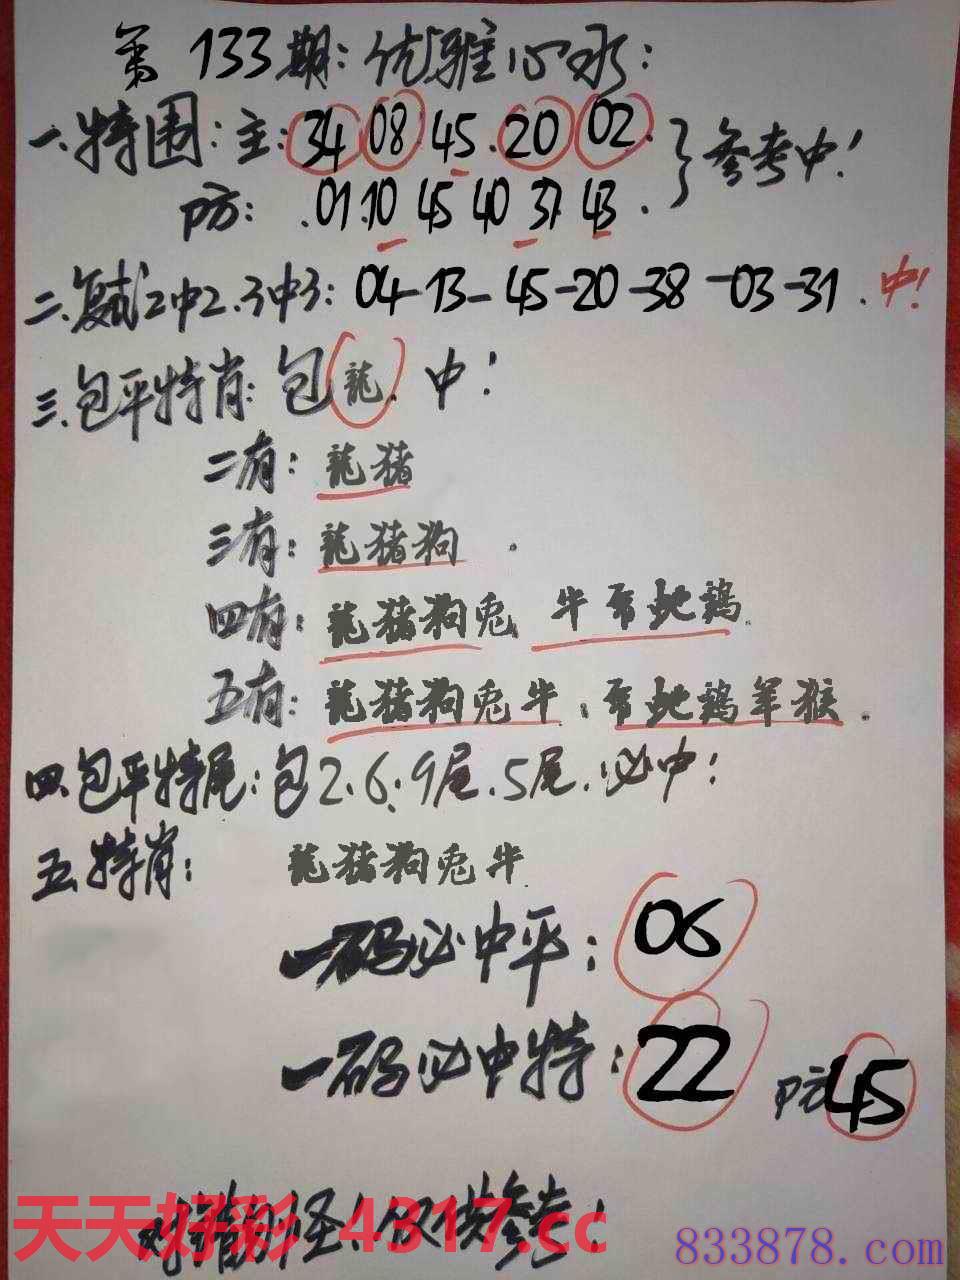 第133期:优雅心水:
一.特围:主:34 08 45.20 02. }参考中!
防: .01.10 45 40 37 43 .
二.复式2中2.3中3: 04-13-45-20-38-03-31.中!
三.包平特肖:包龍.中!
二有:龍猪
三有:龍猪狗.
四有:龍猪狗兔 牛 蛇鷄
五有:龍猪狗兔牛. 蛇鷄羊猴.
四.包平特尾:包2.6.9尾.5尾.必中!
五.特肖: 龍猪狗兔牛
一码必中平:06
一码必中特:22 防45
对错别怪!仅供参考!
天天好彩 4317.cc
833878.com